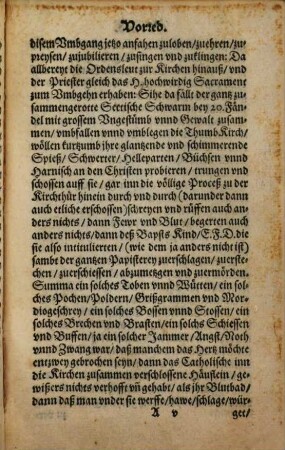 Vorred.
disem Vmbgang jetzo anfahen zuloben/zuehren/zu-
preysen/zujubilieren/zusingen vnd zuklingen: Da
allbereyt die Ordensleut zur Kirchen hinauß/vnd
der Priester gleich das H. hochwirdig Sacrament
zum Vmbgehn erhaben: Sihe da fällt der gantz zu-
sammengerotte Sectische Schwarm bey 20. Fän-
del mit grossem Vngestümb vnnd Gewalt zusam-
men/vmbfallen vnnd vmblegen die ThumbKirch/
wöllen kurtzumb ihre glantzende vnd schimmerende
Spieß/Schwerter/Helleparten/Büchsen vnnd
Harnisch an den Christen probieren/trungen vnd
schossen auff sie/gar inn die völlige Proceß zu der
Kirchthür hinein durch vnd durch (darunder dann
auch etliche erschossen) schreyen vnd rüffen auch an-
ders nichts/dann Fewr vnd Blut/begerten auch
anders nichts/dann deß Bapsts Kind/E.F.D. die
sie also intitulierten/(wie dem ja anders nicht ist)
sambt der gantzen Papisterey zuerschlagen/zuerste-
chen/zuerschiessen/abzumetzgen vnd zuermörden.
Summa ein solches Toben vnnd Wüten/ein sol-
ches Pochen/Poldern/Grißgrammen vnd Mor-
diogeschrey/ein solches Bossen vnnd Stossen/ein
solches Brechen vnd Brasten/ein solchs Schiessen
vnd Buffen/ja ein solcher Jammer/Angst/Noth
vnnd Zwang war/daß manchem das Hertz möchte
entzwey gebrochen seyn/dann das Catholische inn
die Kirchen zusammen verschlossene Häuflein/ge-
wißers nichts verhofft vñ gehabt/als jhr Blutbad/
dann daß man vnder sie werffe/hawe/schlage/wür-
A v ger/